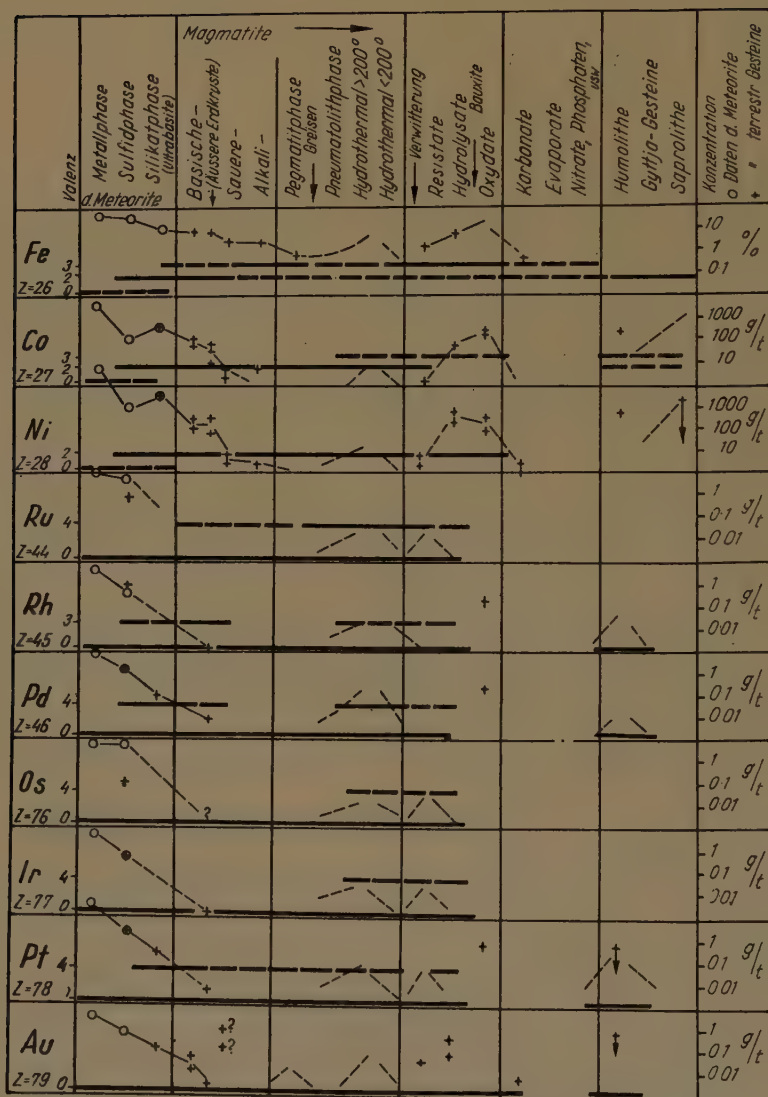 Valenz
Metallphase
Sulfidphase
Silikatphase
(Ultrabasite)
d. Meteorite
Magmatite
Basische-
(Äussere Erdkruste)
Sauere-
Alkali-
Pegmatitphase
Greisen
Pneumatolithphase
Hydrothermal >200°
Hydrothermal <200°
Verwitterung
Resistate
Hydrolysate
Bauxite
Oxydate
Karbonate
Evaporate
Nitrate, Phosphaten,
usw
Humolithe
Gyttja-Gesteine
Saprolithe
Konzentration
o Daten d. Meteorite
+ " terrestr Gesteine
Fe
Z=26
3
2
0
10
1
0·1
%
Co
Z=27
3
2
0
1000
100
10
g/t
Ni
Z=28
2
0
1000
100
10
g/t
Ru
Z=44
4
0
1
0·1
0·01
g/t
Rh
Z=45
3
0
1
0·1
0·01
g/t
Pd
Z=46
4
0
1
0·1
0·01
g/t
Os
Z=76
4
0
?
1
0·1
0·01
g/t
Ir
Z=77
4
0
1
0·1
0·01
g/t
Pt
Z=78
4
1
0·1
0·01
g/t
Au
Z=79
0
+?
+?
1
0·1
0·01
g/t